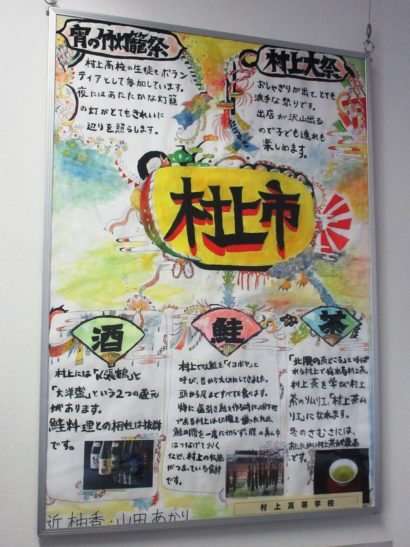 宵の竹灯籠祭
村上高校の生徒もボラン
ティアとして参加しています。
夜にはあたたかな灯籠
の灯がとてもきれいに
辺りを照らします。
村上大祭
おしゃぎりが出て、とても
派手な祭りです。
出店が沢山出る
ので子ども連れも
楽しめます。
村上市
酒
村上には「〆張鶴」と
「大洋盛」という2つの蔵元
があります。
鮭料理との相性は抜群
です。
鮭
村上では鮭を「イヨボヤ」と
呼び、昔から大切にしてきました。
頭から尾まですべて食べます。
特に塩引き鮭を作る時には城下町
である村上は切腹を嫌ったため、
鮭の腹を一度に切らず、腹の真ん中
はつなげておく
など、村上の伝統
がつまっている食材
です。
茶
「北限の茶どころ」と呼ば
れる村上
村上茶を学び村上
茶のソムリエ、「村上茶ムリエ」になれます。
冬のさむさには、
あたたかい村上茶が最高
です。
近 柚香・山田あかり
村上高等学校